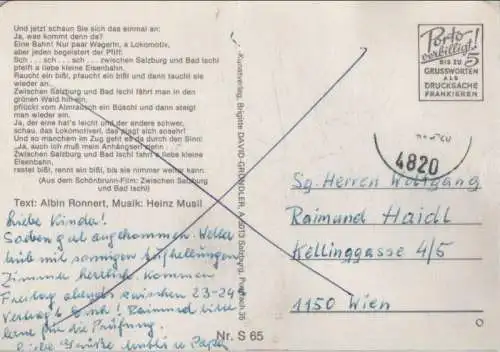 Und jetzt schaun Sie sich das einmal an:
Ja, was kommt denn da?
Eine Bahn! Nur paar Wagerln, a Lokomotiv,
aber jeden begeistert der Pfiff:
Sch . . . sch . . . sch . . . zwischen Salzburg und Bad Ischl
pfeift a liebe kleine Eisenbahn.
Raucht ein bißl, pfaucht ein bißl und dann taucht sie
wieder an.
Zwischen Salzburg und Bad Ischl fährt man in den
grünen Wald hinein,
pflückt vom Almrausch ein Büschl und dann steigt
man wieder ein.
Ja, der eine hat's leicht und der andere schwer,
schau, das Lokomotiverl, das plagt sich sosehr!
Und so manchem im Zug geht es da durch den Sinn:
„Ja, auch ich muß mein Anhängserl ziehn . . ."
Zwischen Salzburg und Bad Ischl fahrt a liebe kleine
Eisenbahn,
rastet bißl, rennt ein bißl, bis sie nimmer weiter kann.
(Aus dem Schönbrunn-Film: Zwischen Salzburg
und Bad Ischl)
Text: Albin Ronnert, Musik: Heinz Musil
Liebe Kinder!
Soeben gut angekommen. Wetter
trüb mit sonnigen Aufhellungen
Zimmer herrlich. Kommen
Freitag abends zwischen 23-24
Raimund bitte
lerne für die Prüfung.
Grüße Mutti u Papa
Kunstverlag, Brigitte DAVID-GRÜNDLER, A-5013 Salzburg, Postfach 36
Nr. S 65
Porto
verbilligt!
BIS ZU
5
GRUSSWORTEN
ALS
DRUCKSACHE
FRANKIEREN
4820
Sg. Herren Wolfgang
Raimund Haidl
Kellinggasse 4/5
1150 Wien